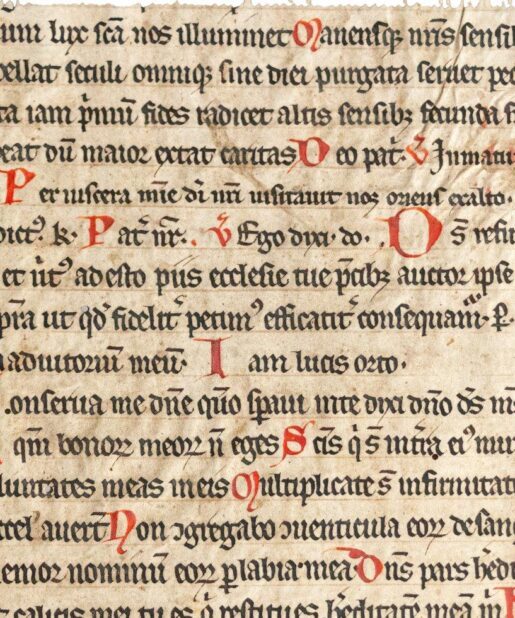 um lux scā nos illuminet Manensq; nr̄is sensib
pellat seculi omniq; sine diei purgata seruet pec
ta iam p̄mū fides radicet altis sensib; secunda s
eat dū maior extat caritas Deo pat̄. v̄ In matu
Per uiscera m̄ie dī nr̄i uisitauit nos oriens exalto.
dict⁹. k. Pat̄ nr̄. v̄ Ego dixi. do. Ds̄ refu
et ūt⁹ adesto piis ecclesie tue p̄cib; auctor ipse
pr̄a ut qd̄ fidelit̄ petim⁹ efficacit̄ consequam̄. P.
adiutoriū meū. Iam lucis orto.
onserua me dn̄e qūo sp̄aui in te dixi dn̄o ds̄ m̄
qm̄ bonoꝝ meoꝝ n̄ eges Scīs q̄ s̄ in tr̄a ei⁹ mir
luntates meas in eis Multiplicate s̄ infirmitat
ccel auert̄ Non ꝯgregabo ꝯuenticula eoꝝ de san
emor nominū eoꝝ p̱ labia mea Dn̄s pars h̄edi
calicis mei tu es q̄ restitues h̄editatē meā m̄